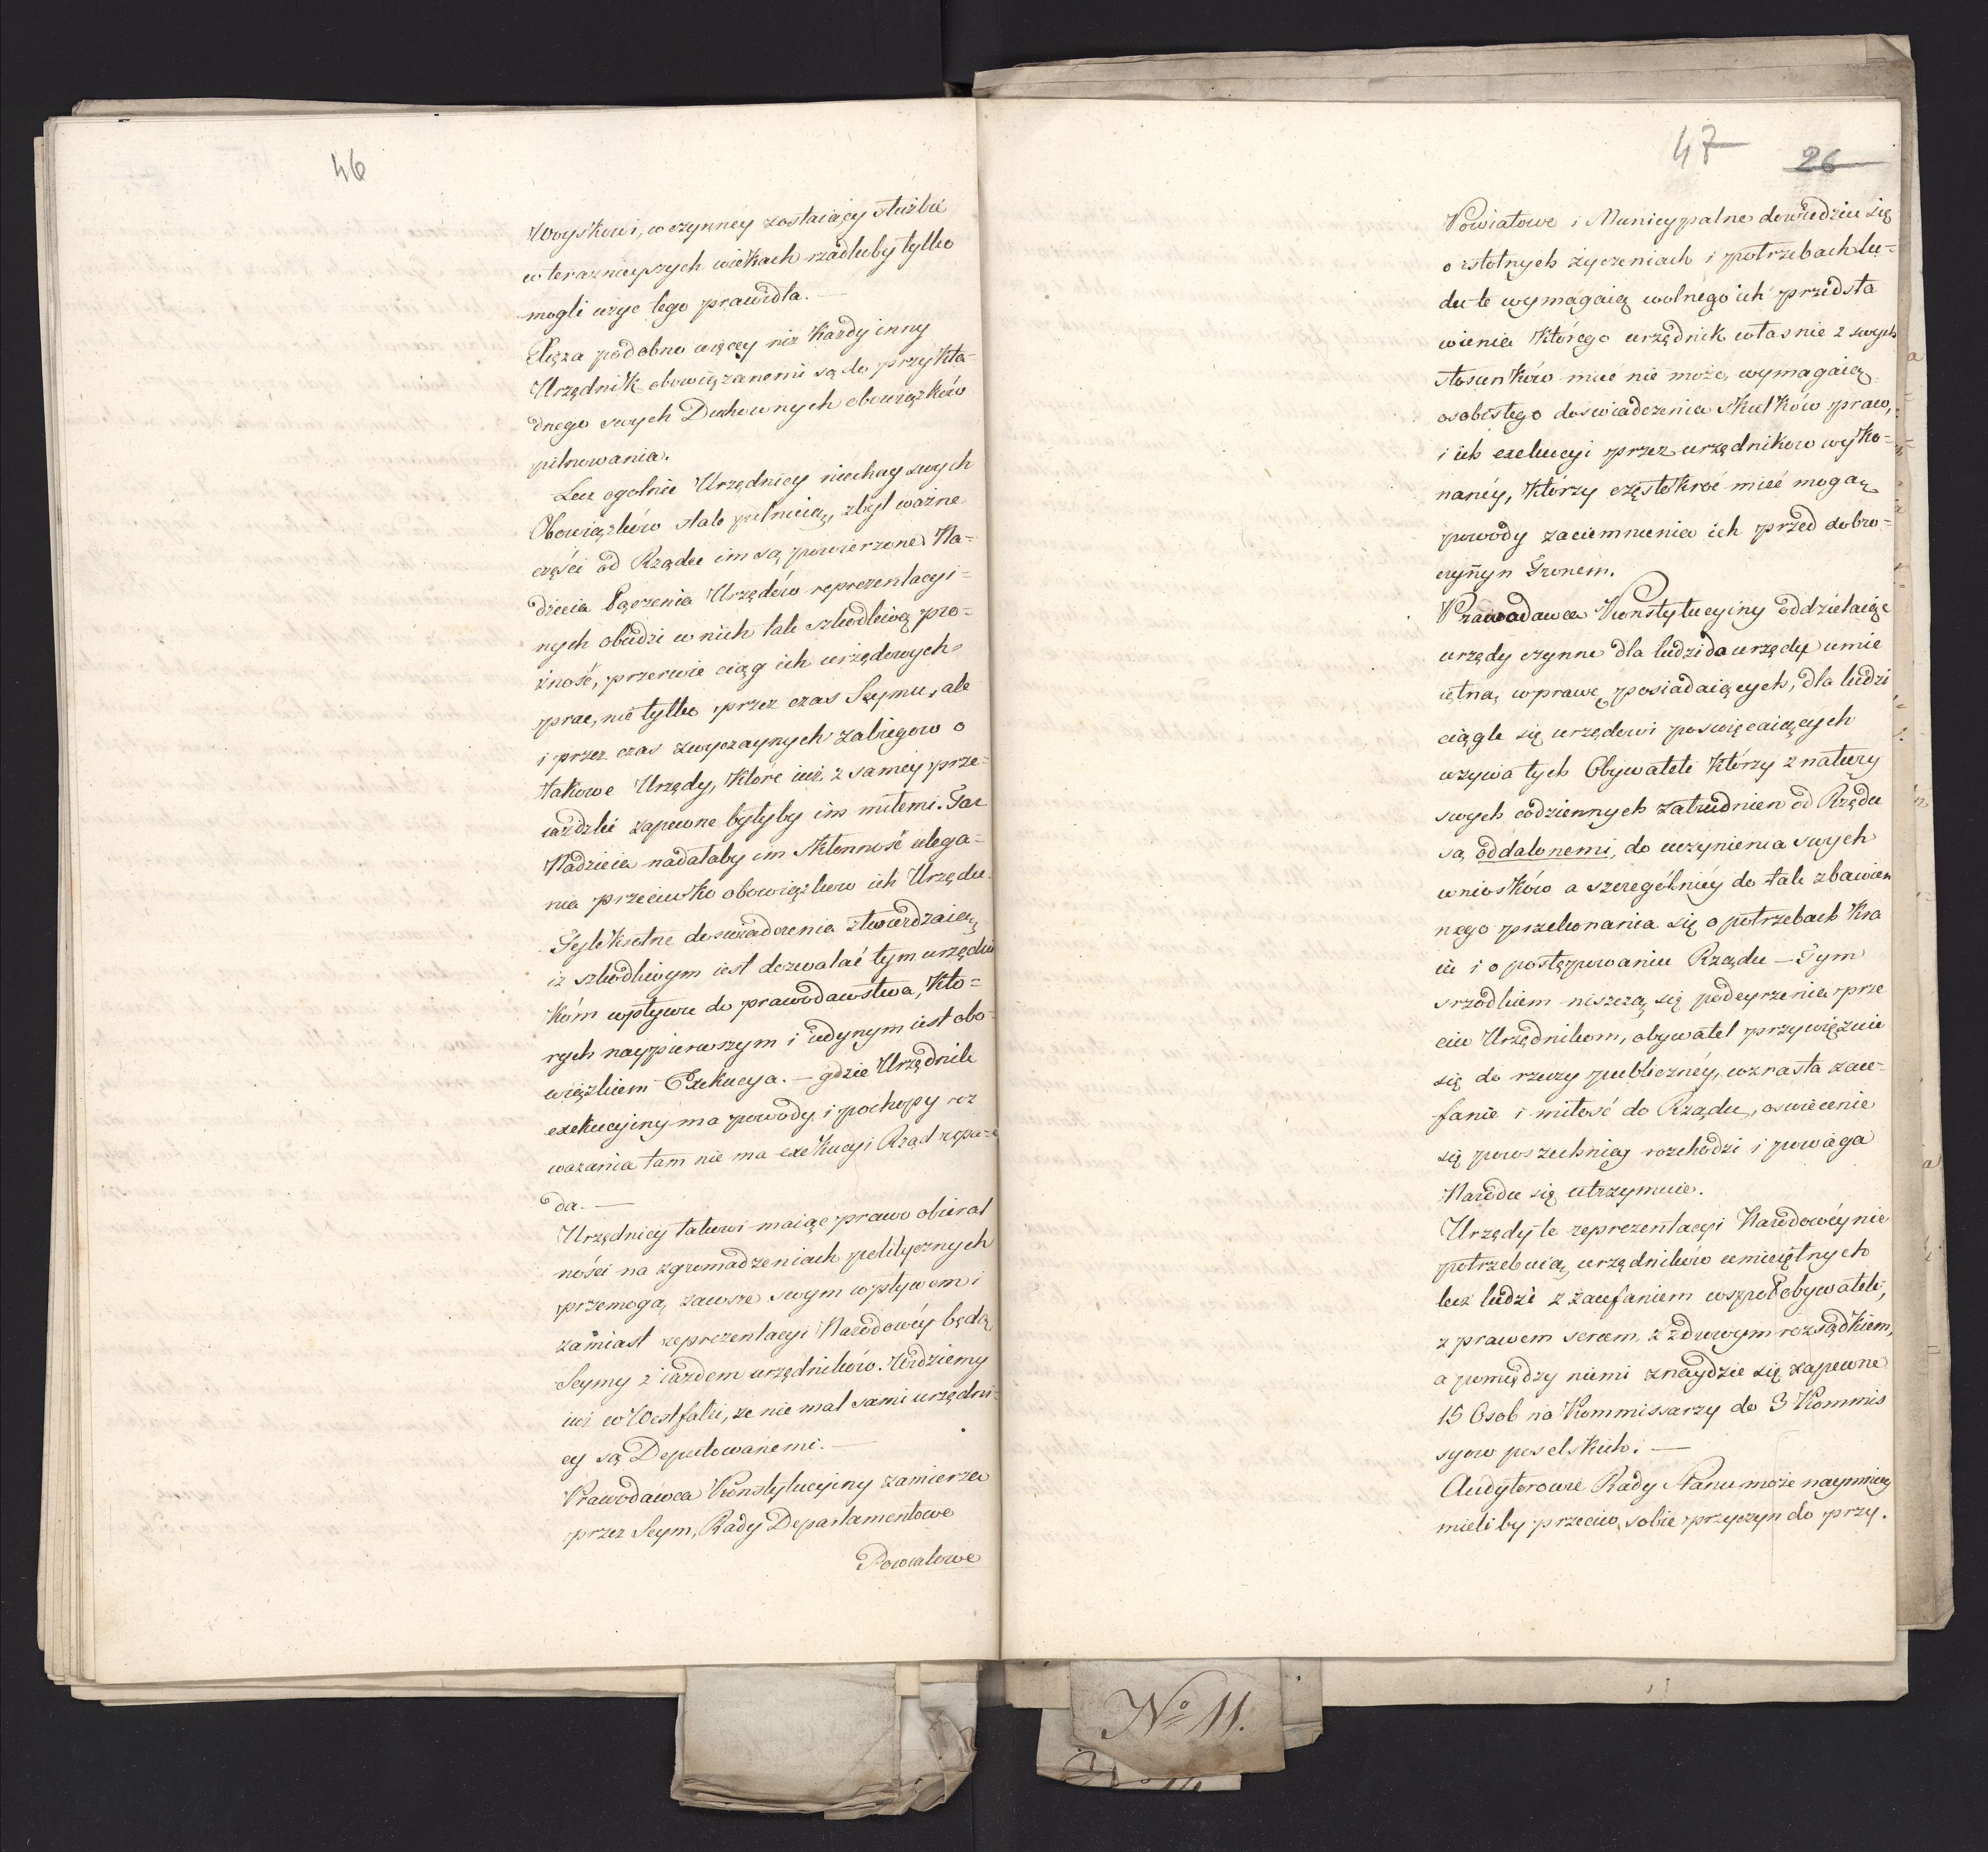 46
Woyskowi, w czynney zostaiący służbie
w teraznieyszych wiekach rzadkoby tylko
mogli użyc tego prawidła. —
Xięża podobno więcey niż każdy inny
Urzędnik obowiązanemi są do przykła-
dnego swych Duchownych obowiązków
pilnowania.
Lecz ogolnie Urzędnicy niechay swych
Obowiązków stale pilnuią, zbyt ważne
części od Rządu im są powierzone. Na-
dzieia łączenia Urzędów reprezentacyi-
nych obudzi w nich tak szkodliwą pro-
żność, przerwie ciąg ich urzędowych
prac, nie tylko przez czas Seymu, ale
i przez czas zwyczaynych zabiegow o
takowe Urzędy, które iuż z samey prze-
iazdzki zapewne byłyby im miłemi. Taż
Nadzieia nadałaby im skłonność ulega-
nia przeciwko obowiązkow ich Urzędu.
Tylekrotne doswiadczenia ztwierdzaią,
iż szkodliwym iest dozwalać tym urzędni
kóm wpływu do prawodawstwa, kto-
rych naypierwszym i iedynym iest obo-
wiązkiem Exekucya. — gdzie Urzędnik
exekucyiny ma powody i pochopy roz
ważania tam nie ma exekucyi Rząd upa-
da. —
Urzędnicy takowi maiąc prawo obieral
ności na zgromadzeniach politycznych
przemogą zawsze swym wpływem i
zamiast reprezentacyi Narodowéy będą
Seymy ziazdem urzędników. Widziemy
iuż w Westfalii, że nie mal sami urzędni-
cy są Deputowanemi. —
Prawodawca Konstytucyiny zamierza
przez Seym, Rady Departamentowe
Powiatowe
47 26
Powiatowe i Municypalne dowiedzieć się
o istotnych życzeniach i potrzebach lu-
du te wymagaią wolnego ich przedsta
wienia którego urzędnik własnie z swych
stosunków miec nie może, wymagaią
osobistego doświadczenia skutków praw,
i ich exekucyi przez urzędnikow wyko-
nanéy, którzy częstokroć mieć mogą
powody zaciemnienia ich przed dobro-
czyñyn Tronem.
Prawodawca Konstytucyiny oddzielaiąc
urzędy czynne dla ludzi do urzędu umie
iętną wprawę posiadaiących, dla ludzi
ciągle się urzędowi poswięcaiących
używa tych Obywateli którzy z natury
swych codziennych zatrudnien od Rządu
są oddalonemi, do uczynienia swych
wniosków a szczególniéy do tak zbawien
nego przekonania się o potrzebach Kra
iu i o postępowaniu Rządu — Tym
srzodkiem niszczą się podeyrzenia prze
ciw Urzędnikom, obywatel przywięzuie
się do rzeczy publicznéy, wzrasta zau-
fanie i miłość do Rządu, oswiecenie
się powszechniéy rozchodzi i powaga
Narodu się utrzymuie.
Urzędy te reprezentacyi Narodowéy nie
potrzebuią urzędników umieiętnych
lecz ludzi z zaufaniem wspołobywateli,
z prawem sercem, z zdrowym rozsądkiem,
a pomiędzy niemi znaydzie się zapewne
15 Osob na Kommissarzy do 3 Kommis
syow poselskich. —
Audytorowie Rady Stanu może naymniey
mieliby przeciw sobie przyczyn do przy.
No 11.